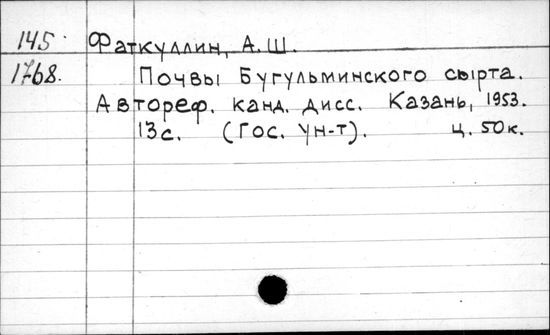 145. Фаткуллин, А.Ш.
1768. Почвы Бугульминского сырта.
Автореф. канд. дисс. Казань, 1953.
13с. (Гос. ун-т). ц. 50к.